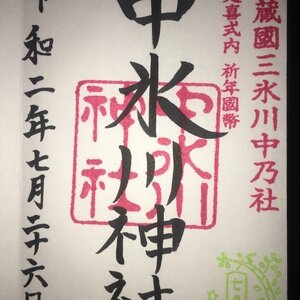 蔵國三氷川中乃社
喜式内 祈年國幣
中氷川神社
中氷川
神社
令和二年七月二十六日